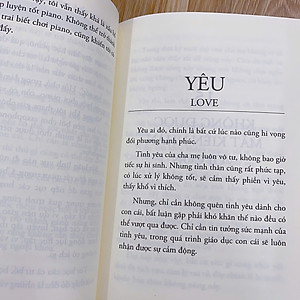 , tôi vẫn thấy khá là xấu
luyện tốt piano. Không thể trở
trai biết chơi piano, cũng khiến tôi
đấy.
YÊU
LOVE
Yêu ai đó, chính là bất cứ lúc nào cũng hi vọng
đối phương hạnh phúc.
Tình yêu của cha mẹ luôn vô tư, không bao giờ
tiếc sự hi sinh. Nhưng tình thân cũng rất phức tạp,
có lúc xử lý không tốt, sẽ cảm thấy phiền vì yêu,
thấy khổ vì thích.
Nhưng, chỉ cần không quên tình yêu dành cho
con cái, bất luận gặp phải khó khăn thế nào đều có
thể vượt qua được. Chỉ cần tin tưởng sức mạnh của
tình yêu, trong quá trình giáo dục con cái sẽ luôn
nhận được sự cảm động.